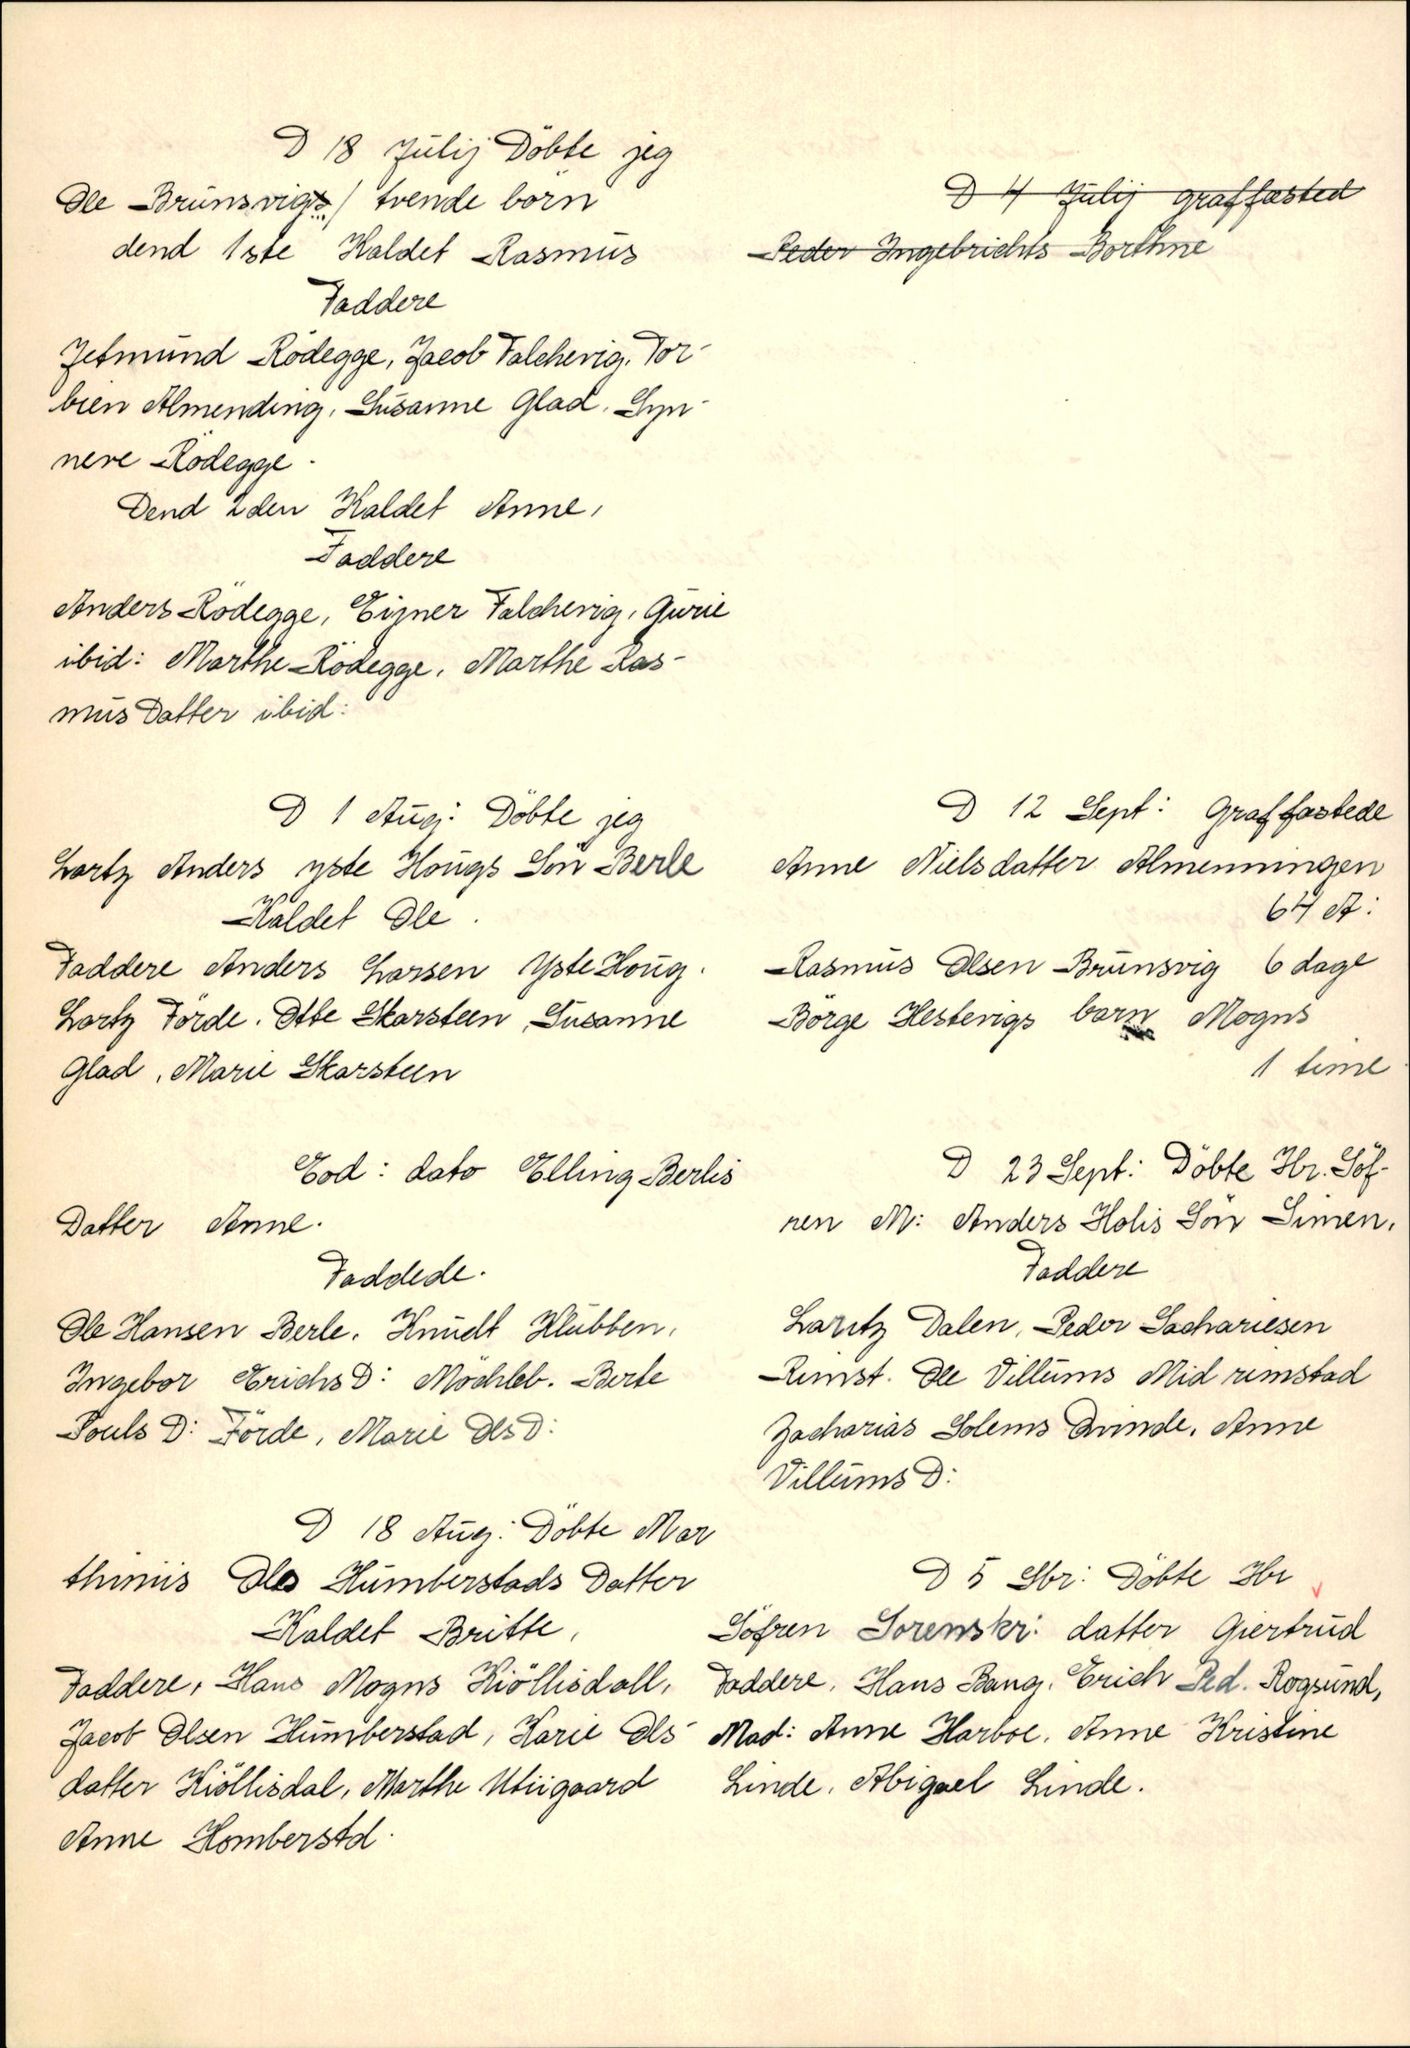 D 18 Julij Döbte jeg
Ole Brunsvigs / tvende börn
dend 1ste Kaldet Rasmus
Faddere
Jetmund Rödegge, Jacob Falchevig, Tor-
bien Almending, Susanne Glad, Syn-
neve Rödegge.
Dend 2den Kaldet Anne,
Faddere
Anders Rödegge, Eigner Falchevig, Gurie
ibid: Marthe Rödegge, Marthe Ras-
mus Datter ibid:
D 1 Aug: Döbte jeg
Lartz Anders yste Hougs Sön Berle
Kaldet Ole.
Faddere Anders Larsen Yste Houg.
Lartz Förde. Otte Skarsteen, Susanne
Glad, Marie Skarsteen
Eod: dato Elling Berlis
Datter Anne.
Faddede.
Ole Hansen Berle, Knudt Klubben,
Ingebor Erichs D: Möchleb. Berte
Pouls D: Förde, Marie Ols D:
D 18 Aug: Döbte Mar
thinus Ols Humberstads Datter
Kaldet Britte,
Faddere, Hans Mogns Kiöllisdall,
Jacob Olsen Humberstad, Karie Ols-
datter Kiöllisdal, Marthe Utiigaard
Anne Homberstd.
D 4 Julij graffæsted
Peder Ingebrichts Borthne
D 12 Sept: Graffæstede
Anne Nielsdatter Almenningen
64 A:
Rasmus Olsen Brunsvig 6 dage
Börge Hestevigs barn Mogns
1 time
D 23 Sept: Döbte Hr. Söf-
ren M: Anders Holis Sön Simen,
Faddere
Laritz Dalen, Peder Sachariesen
Rimst. Ole Villums Mid rimstad
Zacharias Solems Qvinde, Anne
Villums D:
D 5 Sbr: Döbte Hr
Söfren Sorenskr: datter Giertrud
Faddere, Hans Bang, Erich Ped. Rogsund,
Mad: Anne Harboe, Anne Kristine
Linde, Abigael Linde.